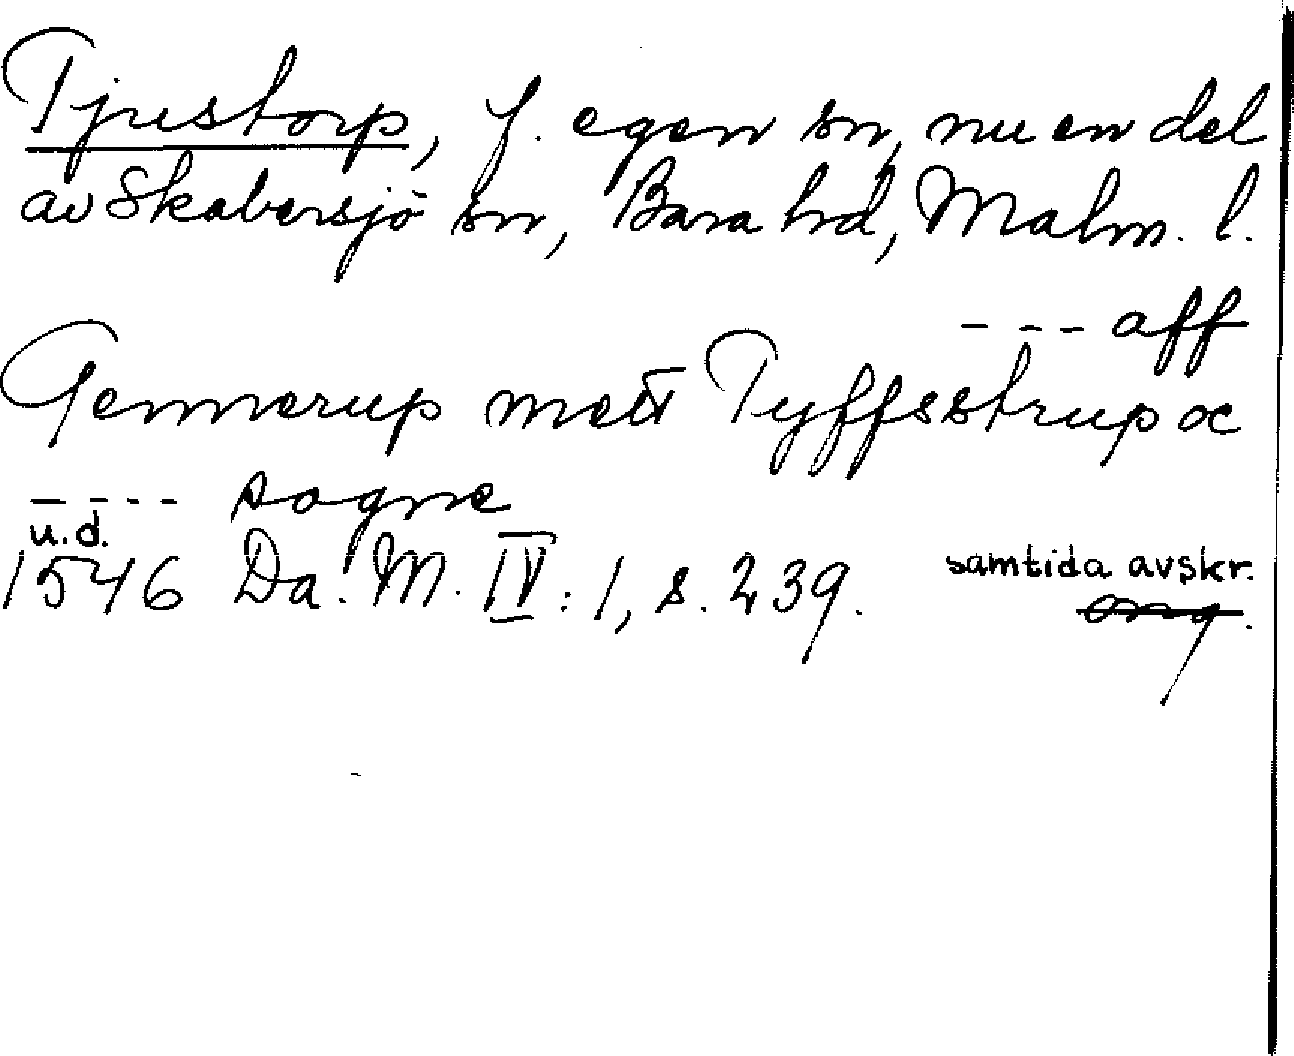 Tjustorp, f. egen sn, nu en del
av Skabersjö sn, Bara hd, Malm. l.
- - - aff
Gennerup mett Tyffsstrup oc
- - - - sogne
u.d.
1546 Da. M. IV : 1, s. 239.
samtida avskr.
orig.